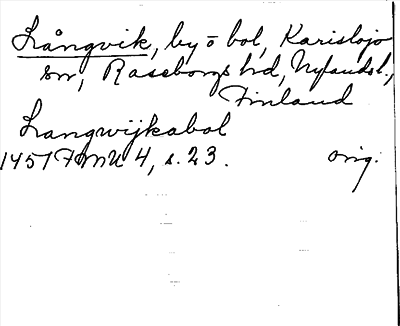 Långvik, by o bol, Karislojo
sn, Raseborgs hd, Nylandsl.,
Finland
Langwijkabol
1451 FMU 4, s. 23. orig.